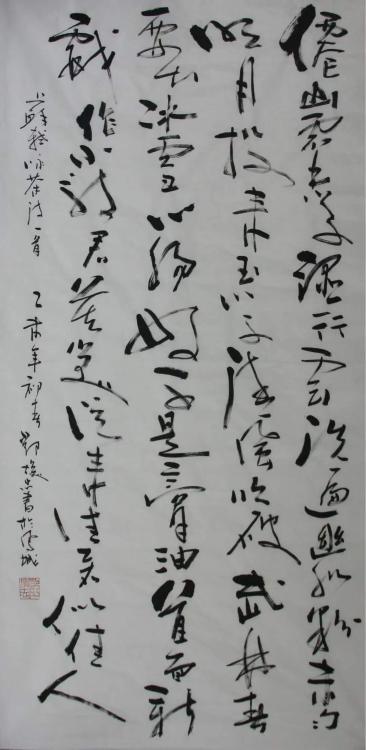 僊山灵草湿行云洗遍香肌粉未匀
明月投来玉川子清風吹破武林春
要知冰雪心肠好不是膏油首面新
戲作小诗君莫笑從来佳茗似佳人
苏轼咏茶诗一首 乙未年初春 劉 書於鳳城